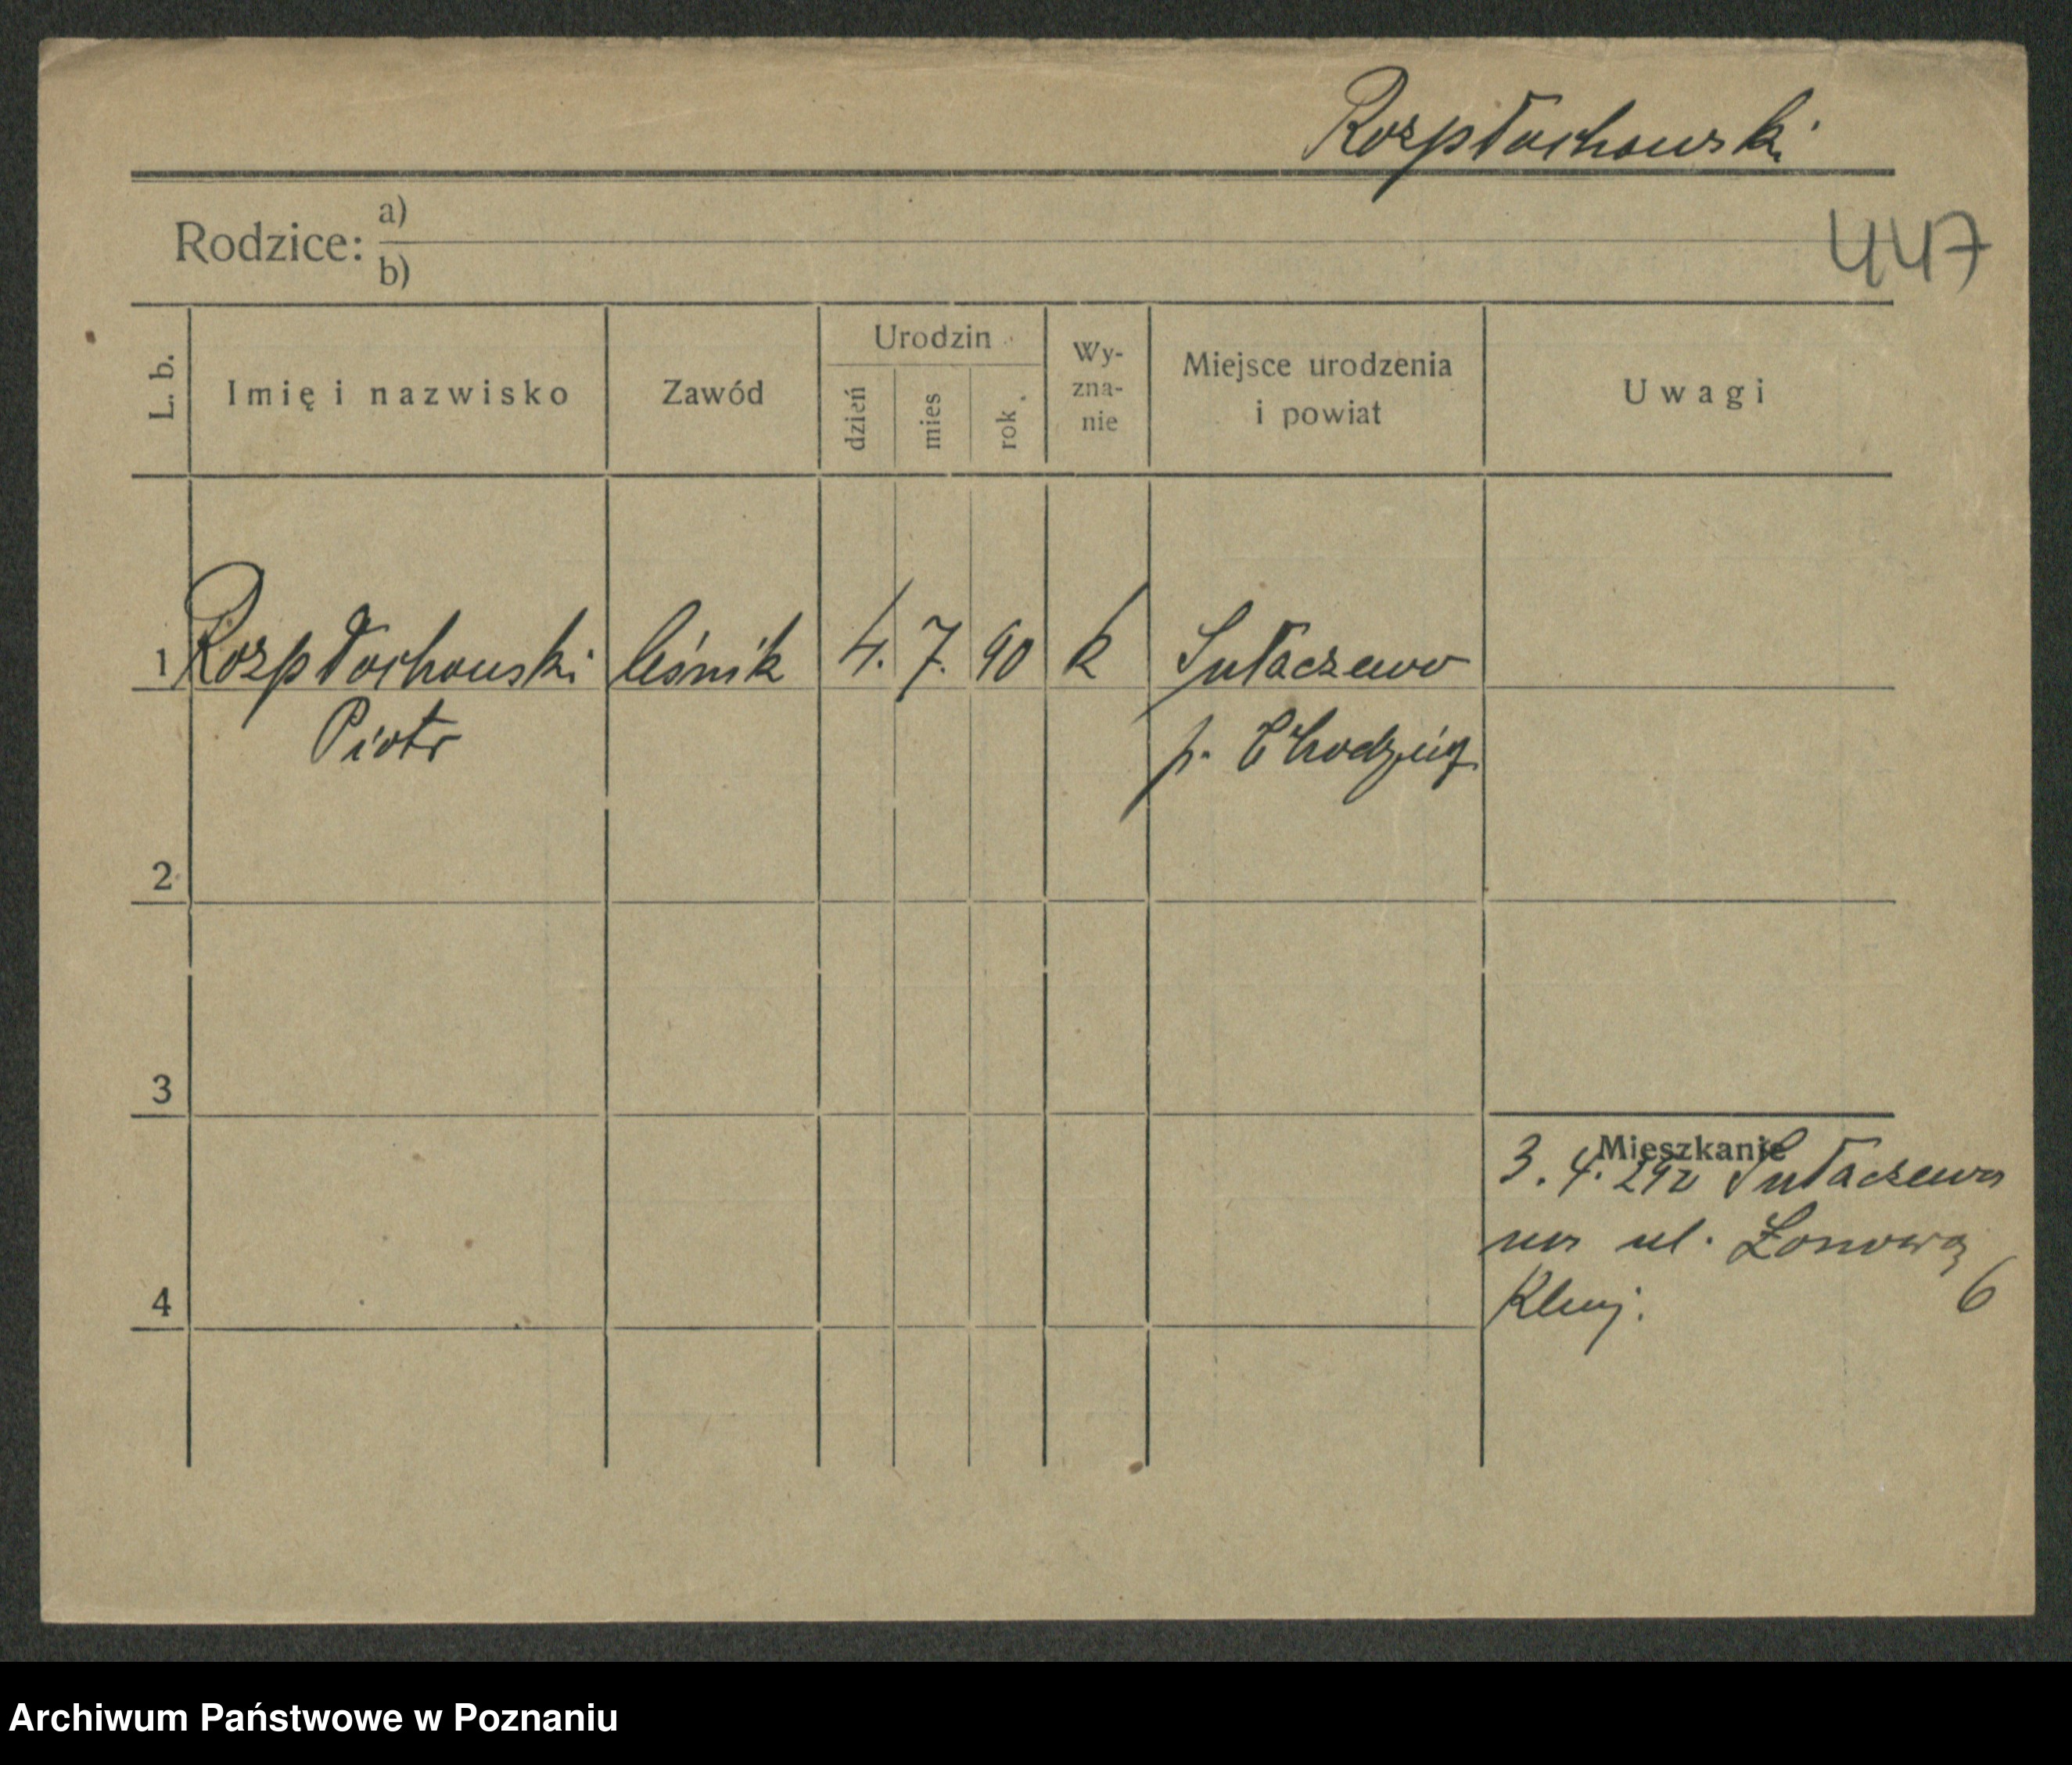 Rozpłochowski
447
Rodzice: a)
b)
L. b.
Imię i nazwisko
Zawód
Urodzin
dzień
mies
rok
Wy-
zna-
nie
Miejsce urodzenia
i powiat
Uwagi
1 Rozpłochowski leśnik 4. 7. 90 k Sułaczewo
Piotr p. Chodzież
2
3
Mieszkanie
3. 4. Sułaczewa
na ul. Łonową
6
4
Archiwum Państwowe w Poznaniu